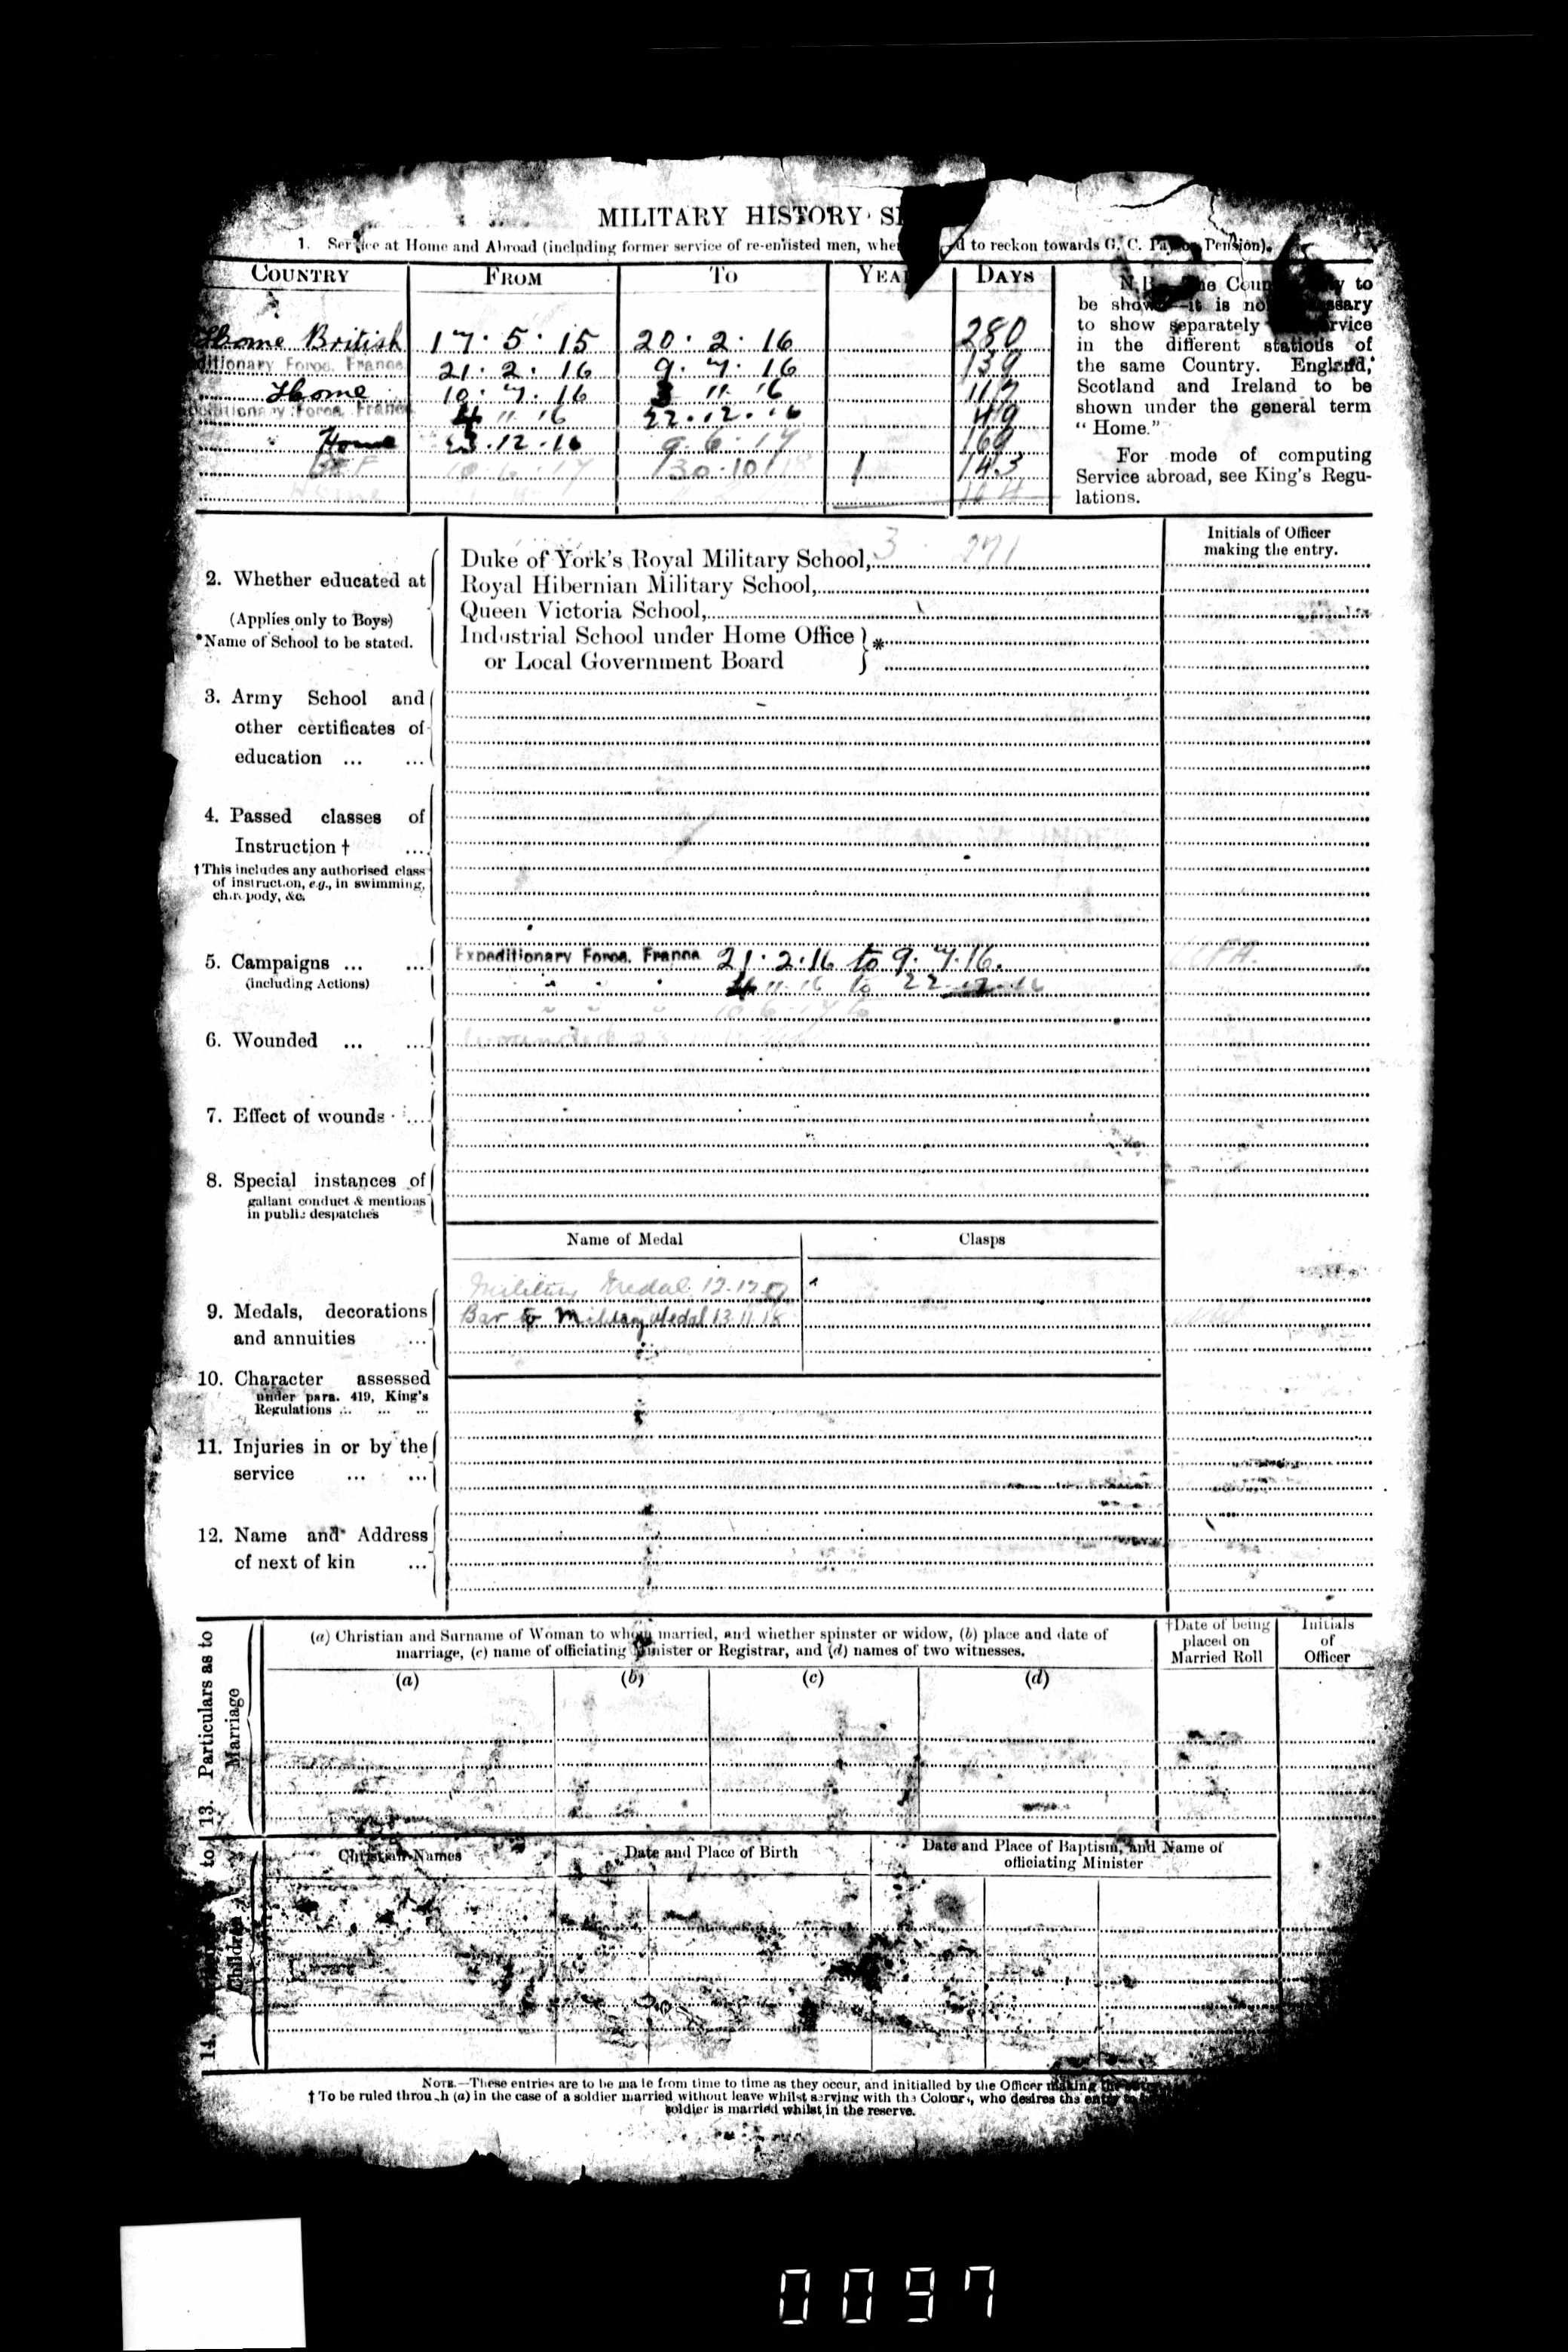 MILITARY HISTORY
1. Service at Home and Abroad (including former service of re-enlisted men, when to reckon towards G. C. Pay or Pension).
COUNTRY FROM TO YEA DAYS
Home British 17.5.15 20.2.16 280
ditionary Force. France 21.2.16 9.7.16 139
Home 10.7.16 3 11 16 117
ditionary Force, France 4 11 16 22.12.16 49
Home 23.12.16 9.6.17 169
BEF 10.6.17 30.10.18 1 143
Home
3 271
N.B. Coun to
be show it is no ssary
to show separately rvice
in the different stations of
the same Country. England,
Scotland and Ireland to be
shown under the general term
“ Home.”
For mode of computing
Service abroad, see King's Regu-
lations.
Initials of Officer
making the entry.
2. Whether educated at
(Applies only to Boys)
*Name of School to be stated.
Duke of York's Royal Military School,
Royal Hibernian Military School,
Queen Victoria School,
Industrial School under Home Office } *
or Local Government Board
3. Army School and
other certificates of
education ... ...
4. Passed classes of
Instruction † ...
† This includes any authorised class
of instruction, e.g., in swimming,
chiropody, &c.
5. Campaigns ... ...
(including Actions)
Expeditionary Force. France 21.2.16 to 9.7.16.
" " " 4 11.16 to 22.12.16
" " " 10.6.17 to
6. Wounded ... ...
Wounded
7. Effect of wounds ...
8. Special instances of
gallant conduct & mentions
in public despatches
Name of Medal Clasps
9. Medals, decorations
and annuities ...
Military Medal. 12.12.17
Bar to Military Medal 13.11.18
10. Character assessed
under para. 419, King's
Regulations ... ... ...
11. Injuries in or by the
service ... ...
12. Name and Address
of next of kin ...
13. Particulars as to
Marriage
(a) Christian and Surname of Woman to whom married, and whether spinster or widow, (b) place and date of
marriage, (c) name of officiating Minister or Registrar, and (d) names of two witnesses.
†Date of being
placed on
Married Roll
Initials
of
Officer
(a) (b) (c) (d)
14. to
Children
Christian Names Date and Place of Birth
Date and Place of Baptism, and Name of
officiating Minister
NOTE.—These entries are to be made from time to time as they occur, and initialled by the Officer making the
† To be ruled through (a) in the case of a soldier married without leave whilst serving with the Colours, who desires the entry
soldier is married whilst in the reserve.
0097